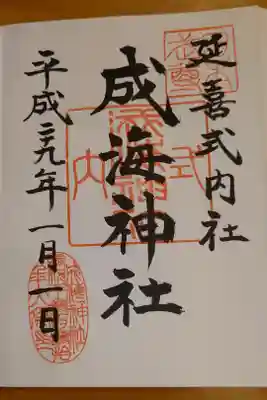 延喜式内社
成海神社
平成二十九年一月一日